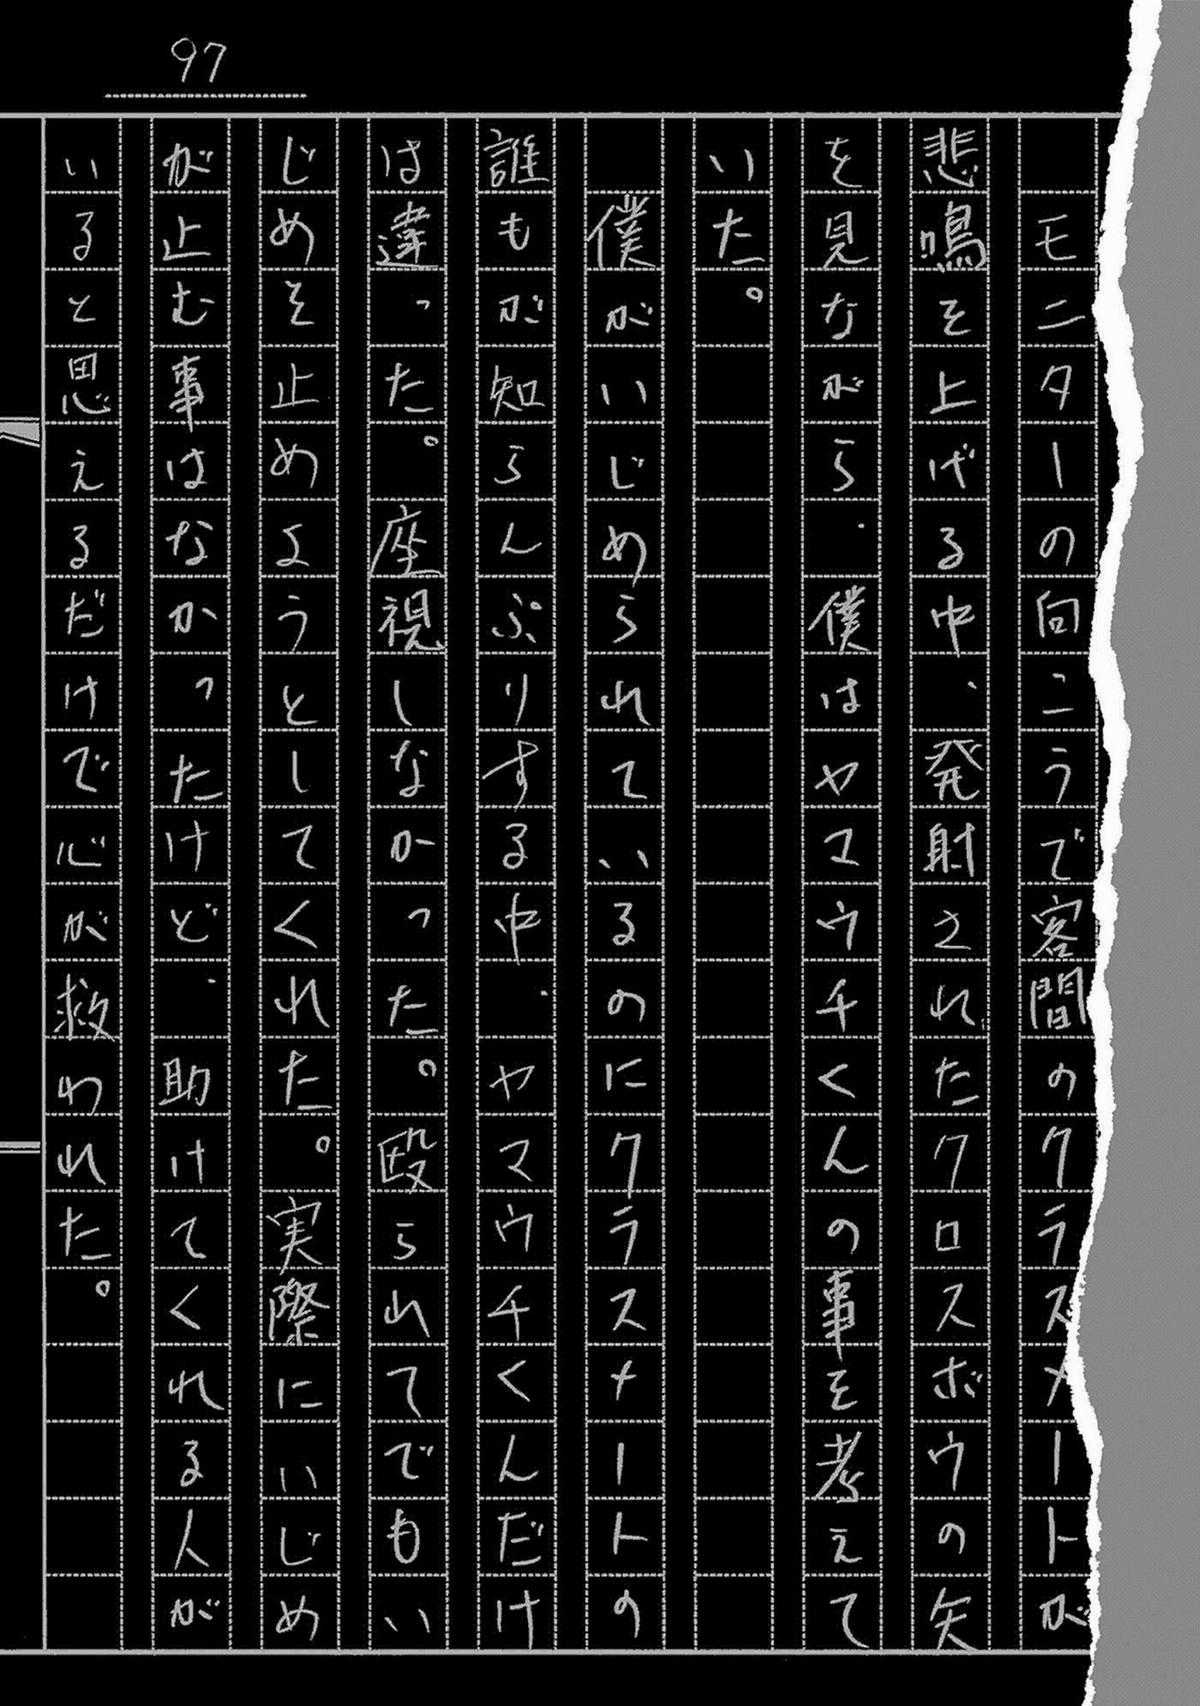 97
モニターの向こうで客間のクラスメートが
悲鳴を上げる中、発射されたクロスボウの矢
を見ながら、僕はヤマウチくんの事を考えて
いた。
僕がいじめられているのにクラスメートの
誰もが知らんぷりする中、ヤマウチくんだけ
は違った。座視しなかった。殴られてでもい
じめを止めようとしてくれた。実際にいじめ
が止む事はなかったけど、助けてくれる人が
いると思えるだけで心が救われた。